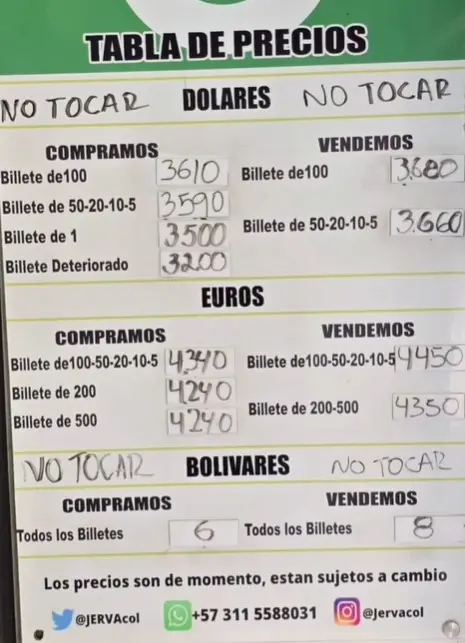 TABLA DE PRECIOS
NO TOCAR DOLARES NO TOCAR
COMPRAMOS VENDEMOS
Billete de100 3610 Billete de100 3.680
Billete de 50-20-10-5 3590 Billete de 50-20-10-5 3.660
Billete de 1 3500
Billete Deteriorado 3200
EUROS
COMPRAMOS VENDEMOS
Billete de100-50-20-10-5 4,340 Billete de100-50-20-10-5 4450
Billete de 200 4240 Billete de 200-500 4350
Billete de 500 4240
NO TOCAR BOLIVARES NO TOCAR
COMPRAMOS VENDEMOS
Todos los Billetes 6 Todos los Billetes 8
Los precios son de momento, estan sujetos a cambio
@JERVAcol +57 311 5588031 @Jervacol